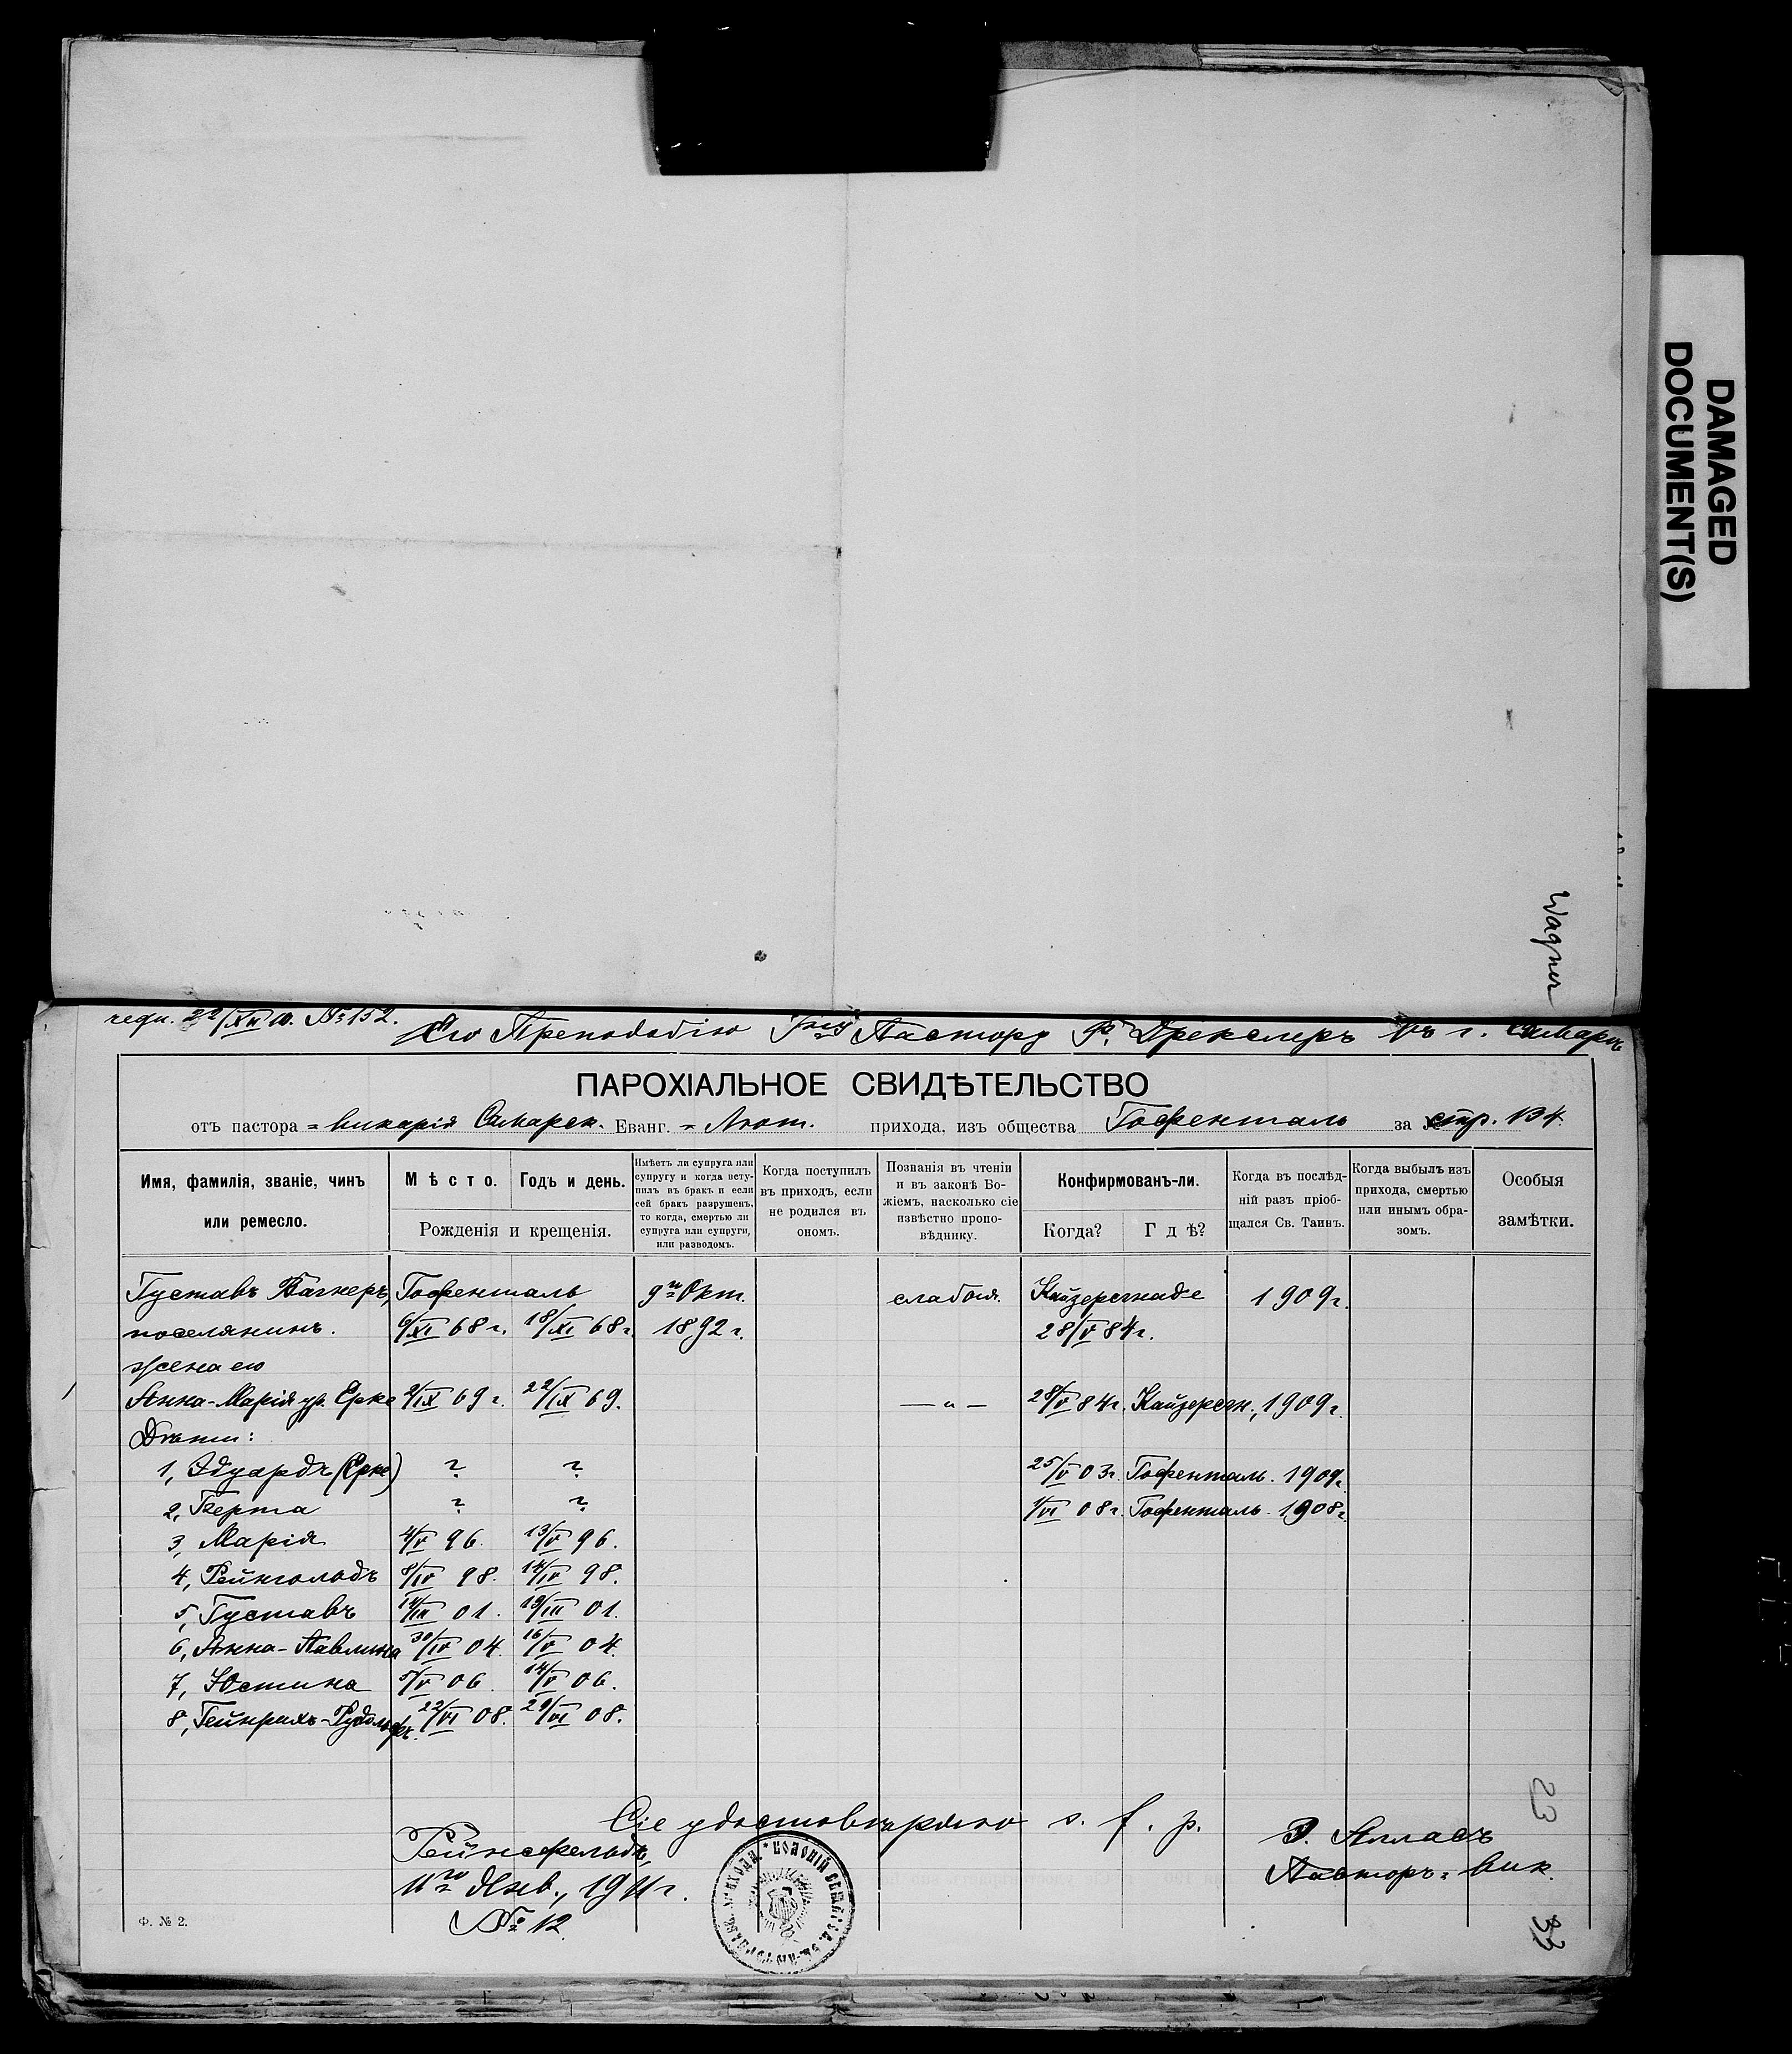 DAMAGED
DOCUMENT(S)
Wagner
requ. 22/XII 10. № 152.
Его Преподобію Гну Пастору Р. Дрекслеръ въ г. Самарѣ
ПАРОХІАЛЬНОЕ СВИДѢТЕЛЬСТВО
отъ пастора = викарія Самарск. Еванг. = Лют. прихода, изъ общества Гофенталь за стр. 134.
Имя, фамилія, званіе, чинъ или ремесло.
Мѣсто. Годъ и день.
Рожденія и крещенія.
Имѣетъ ли супруга или супругу и когда вступилъ въ бракъ и если сей бракъ разрушенъ, то когда, смертью ли супруга или супруги, или разводомъ.
Когда поступилъ въ приходъ, если не родился въ ономъ.
Познанія въ чтеніи и въ законѣ Божіемъ, насколько сіе извѣстно проповѣднику.
Конфирмованъ-ли.
Когда? Гдѣ?
Когда въ послѣдній разъ пріобщался Св. Таинъ.
Когда выбылъ изъ прихода, смертью или инымъ образомъ.
Особыя замѣтки.
Густавъ Вагнеръ, Гофенталь 9го Окт. слабыя. Кайзерсгнаде 1909 г.
поселянинъ. 6/XI 68 г. 18/XI 68 г. 1892 г. 28/V 84 г.
жена его
Анна-Марія ур. Ерке 2/IX 69 г. 22/IX 69. — „ — 28/V 84 г. Кайзерсгн., 1909 г.
Дѣти:
1, Эдуардъ (Ерке) ? ? 25/V 03 г. Гофенталь. 1909 г.
2, Берта ? ? 1/VI 08 г. Гофенталь. 1908 г.
3, Марія 4/V 96. 13/V 96.
4, Рейнгольдъ 8/IV 98. 14/IV 98.
5, Густавъ 14/III 01. 19/III 01.
6, Анна-Павлина 30/IV 04. 16/V 04.
7, Юстина 5/V 06. 14/V 06.
8, Гейнрихъ-Рудольфъ. 22/VI 08. 29/VI 08.
Сіе удостовѣряю s. f. p.
Рейнсфельдъ, Э. Алласъ
11го Янв., 1911 г. Пасторъ = вик.
№ 12.
Ф. № 2.
23
33